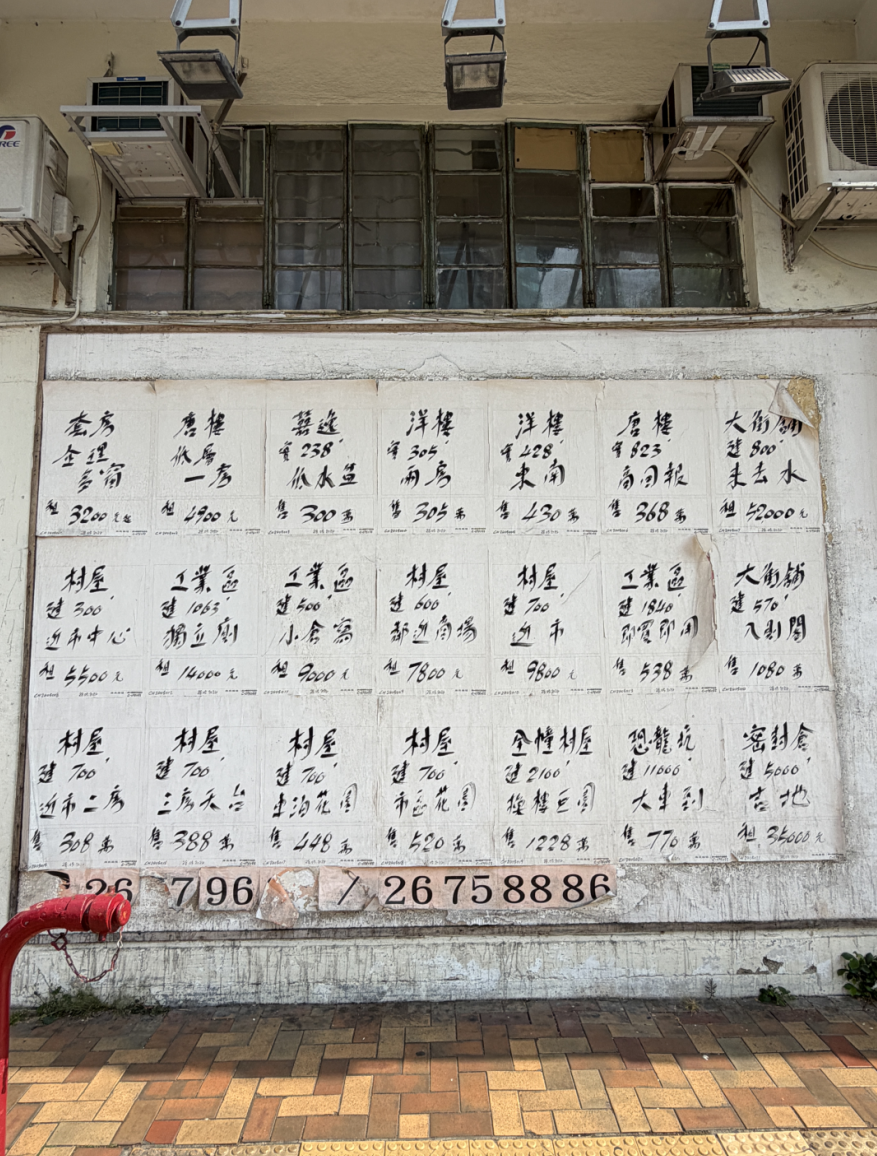 REE
套房
全理
售
租 3200元起
唐樓
低層
一房
租 4900元
藝逸
實 238'
低水盤
售 300萬
洋樓
實 305'
兩房
售 305萬
洋樓
實 428'
東南
售 430萬
唐樓
實 823'
高回報
售 368萬
大街舖
建 800'
未去水
租 52000元
村屋
建 300'
近市中心
租 5500元
工業區
建 1063'
獨立廁
租 14000元
工業區
建 500'
小倉寫
租 9000元
村屋
建 600'
鄰近商場
租 7800元
村屋
建 700'
近市
租 9800元
工業區
建 1840'
即買即用
售 538萬
大街舖
建 570'
入則間
售 1080萬
村屋
建 700'
近市二房
售 308萬
村屋
建 700'
三房天台
售 388萬
村屋
建 700'
花園
售 448萬
村屋
建 700'
市區花園
售 520萬
全幢村屋
建 2100'
連樓巨園
售 1228萬
恐龍坑
建 11000'
大車到
售 770萬
密封倉
建 5000'
吉地
租 35000元
26 796 / 26758886